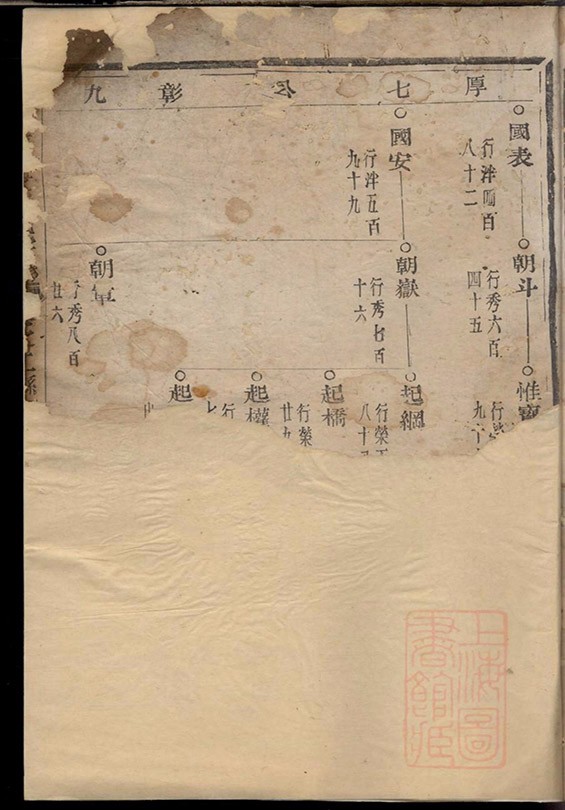 厚七
彰九
國表
行泮四百
八十二
朝斗
行秀六百
四十五
惟
行
九
國安
行泮五百
九十九
朝嶽
行秀七百
十六
起綱
行榮
八十
起橋
行榮
廿九
起
行
起
朝
秀八百
廿六
上海圖
書館藏